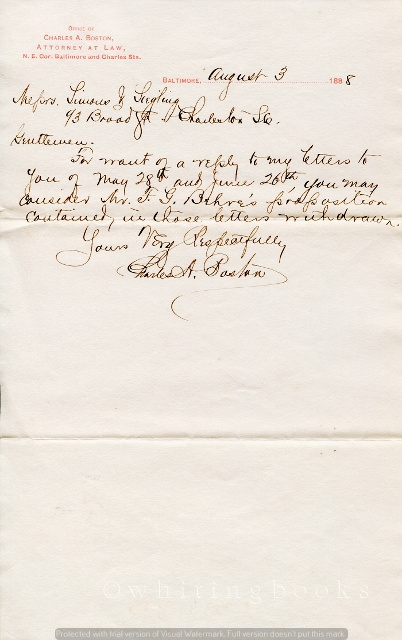 OFFICE OF
CHARLES A. BOSTON,
ATTORNEY AT LAW,
N. E. Cor. Baltimore and Charles Sts.
BALTIMORE, August 3 1888
Messrs. Simons & Siegling
93 Broad St. Charleston S.C.
Gentlemen.
For want of a reply to my letters to
you of May 28th and June 26th, you may
consider Mr. F. G. Behre's proposition
contained, in those letters withdrawn.
Yours Very Respectfully
Charles A. Boston
©whitingbooks
Protected with trial version of Visual Watermark. Full version doesn't put this mark.